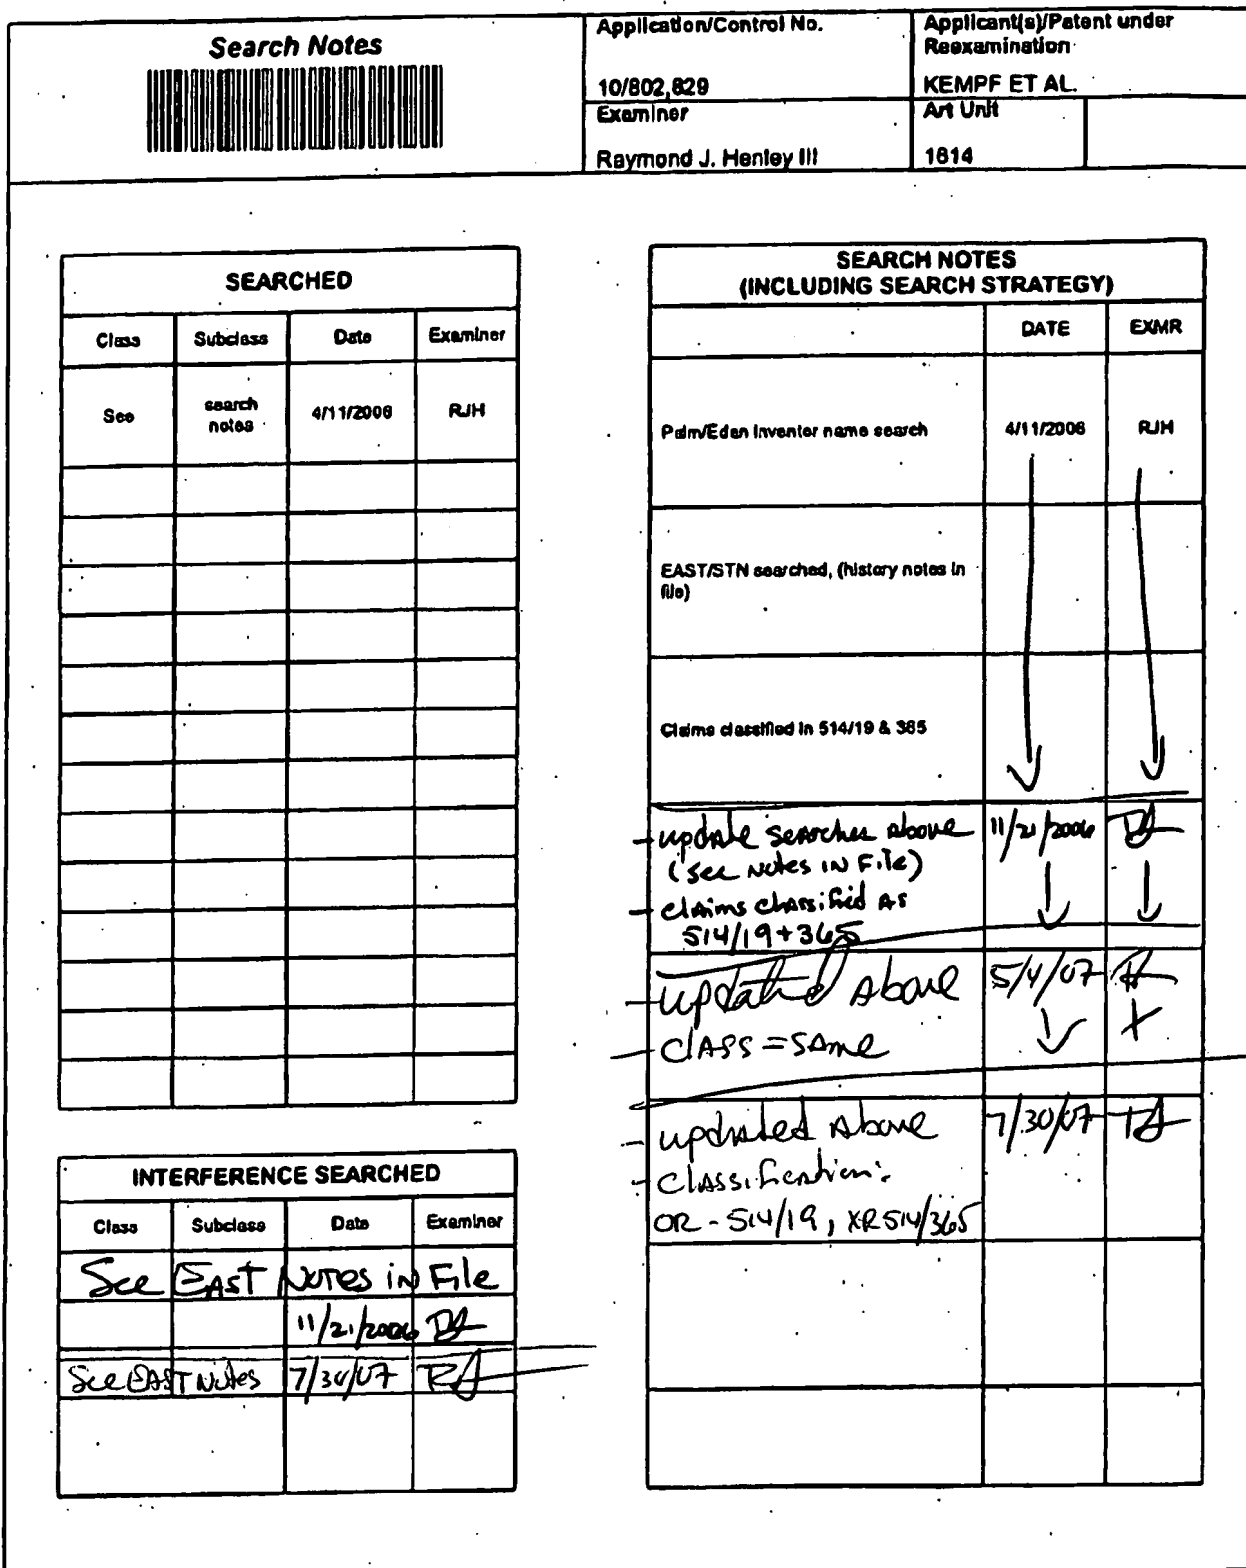 Search Notes
Application/Control No.
10/802,829
Applicant(s)/Patent under
Reexamination
KEMPF ET AL.
Examiner
Raymond J. Henley III
Art Unit
1614
SEARCHED
Class Subclass Date Examiner
See search notes 4/11/2006 RJH
INTERFERENCE SEARCHED
Class Subclass Date Examiner
See EAST Notes in File
11/21/2006
See EAST Notes 7/30/07
SEARCH NOTES
(INCLUDING SEARCH STRATEGY)
DATE EXMR
Palm/Eden Inventor name search 4/11/2006 RJH
EAST/STN searched, (history notes in
file)
Claims classified in 514/19 & 365
- update searches above 11/21/2006
(see notes in File)
- claims classified as
514/19+365
- updated above 5/4/07
- class = same
- updated above 7/30/07
- classification:
OR - 514/19, XR 514/365